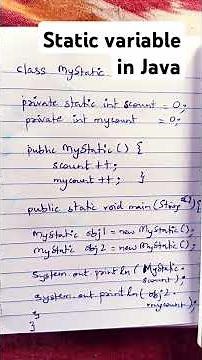 Static variable
in Java
class MyStatic
private static int scount = 0;
private int mycount = 0;
public MyStatic() {
scount++;
mycount++; }
public static void main(String[]
MyStatic obj1 = new MyStatic();
MyStatic obj2 = new MyStatic();
System.out.println(MyStatic.
scount);
System.out.println(obj2.
mycount);
}
}